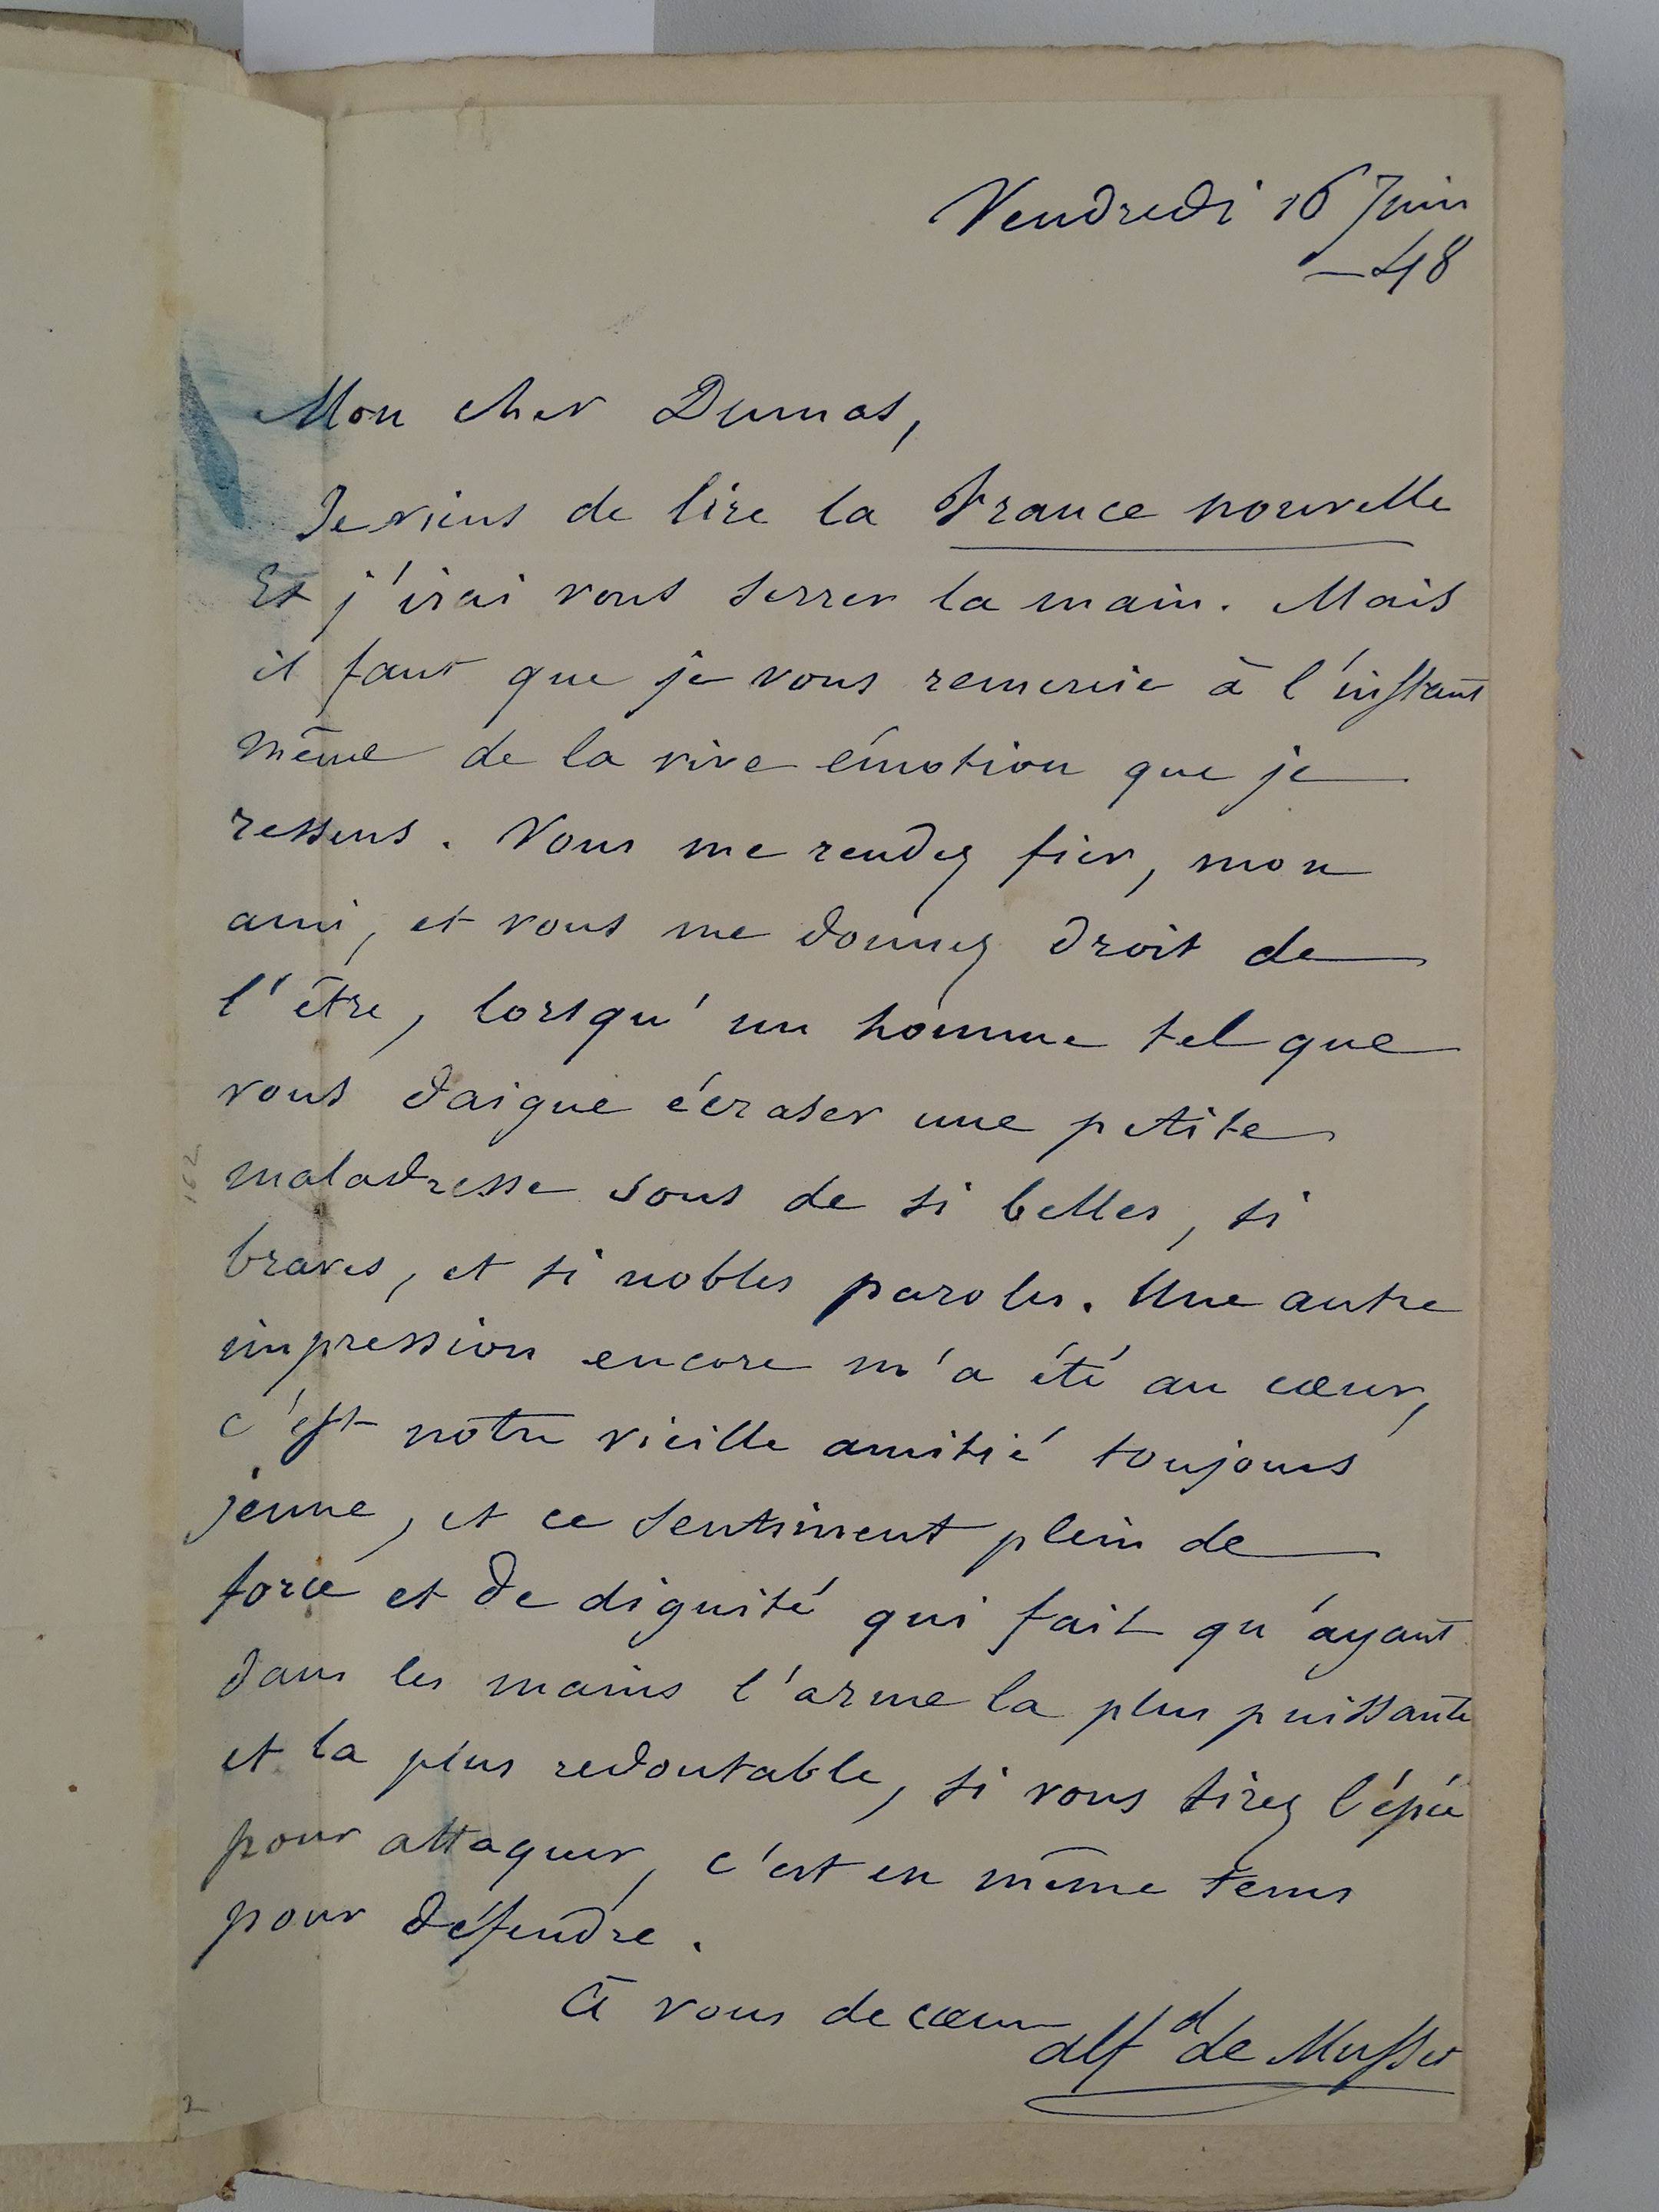 Vendredi 16 Juin
— 48
Mon cher Dumas,
Je viens de lire la France nouvelle
Et j'irai vous serrer la main. Mais
il faut que je vous remercie à l'instant
même de la vive émotion que je
ressens. Vous me rendez fier, mon
ami, et vous me donnez droit de
l'être, lorsqu'un homme tel que
vous daigne écraser une petite
maladresse sous de si belles, si
braves, et si nobles paroles. Une autre
impression encore m'a été au cœur,
c'est notre vieille amitié toujours
jeune, et ce sentiment plein de
force et de dignité qui fait qu'ayant
dans les mains l'arme la plus puissante
et la plus redoutable, si vous tirez l'épée
pour attaquer, c'est en même tems
pour défendre.
à vous de cœur
Alfd de Musset
162
2